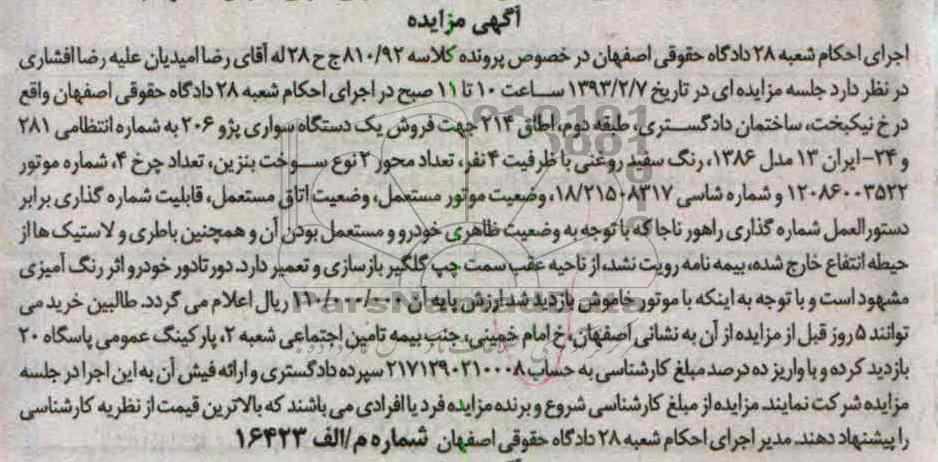 آگهی مزایده
اجرای احکام شعبه ۲۸ دادگاه حقوقی اصفهان در خصوص پرونده کلاسه ۸۱۰/۹۲ ج ح ۲۸ له آقای رضا امیدیان علیه رضا افشاری
در نظر دارد جلسه مزایده ای در تاریخ ۱۳۹۳/۲/۷ ساعت ۱۰ تا ۱۱ صبح در اجرای احکام شعبه ۲۸ دادگاه حقوقی اصفهان واقع
در خ نیکبخت، ساختمان دادگستری، طبقه دوم، اطاق ۲۱۴ جهت فروش یک دستگاه سواری پژو ۲۰۶ به شماره انتظامی ۲۸۱
و ۲۴-ایران ۱۳ مدل ۱۳۸۶، رنگ سفید روغنی با ظرفیت ۴ نفر، تعداد محور ۲ نوع سوخت بنزین، تعداد چرخ ۴، شماره موتور
۱۲۰۸۶۰۰۳۵۲۲ و شماره شاسی ۱۸/۲۱۵۰۸۳۱۷، وضعیت موتور مستعمل، وضعیت اتاق مستعمل، قابلیت شماره گذاری برابر
دستورالعمل شماره گذاری راهور ناجا که با توجه به وضعیت ظاهری خودرو و مستعمل بودن آن و همچنین باطری و لاستیک ها از
حیطه انتفاع خارج شده، بیمه نامه رویت نشد، از ناحیه عقب سمت چپ گلگیر بازسازی و تعمیر دارد. دور تا دور خودرو اثر رنگ آمیزی
مشهود است و با توجه به اینکه با موتور خاموش بازدید شد ارزش پایه آن ۱۱۰/۰۰۰/۰۰۰ ریال اعلام می گردد. طالبین خرید می
توانند ۵ روز قبل از مزایده از آن به نشانی اصفهان، خ امام خمینی، جنب بیمه تامین اجتماعی شعبه ۲، پارکینگ عمومی پاسگاه ۲۰
بازدید کرده و با واریز ده درصد مبلغ کارشناسی به حساب ۲۱۷۱۲۹۰۲۱۰۰۰۸ سپرده دادگستری و ارائه فیش آن به این اجرا در جلسه
مزایده شرکت نمایند. مزایده از مبلغ کارشناسی شروع و برنده مزایده فرد یا افرادی می باشند که بالاترین قیمت از نظریه کارشناسی
را پیشنهاد دهند. مدیر اجرای احکام شعبه ۲۸ دادگاه حقوقی اصفهان شماره م/الف ۱۶۴۲۳